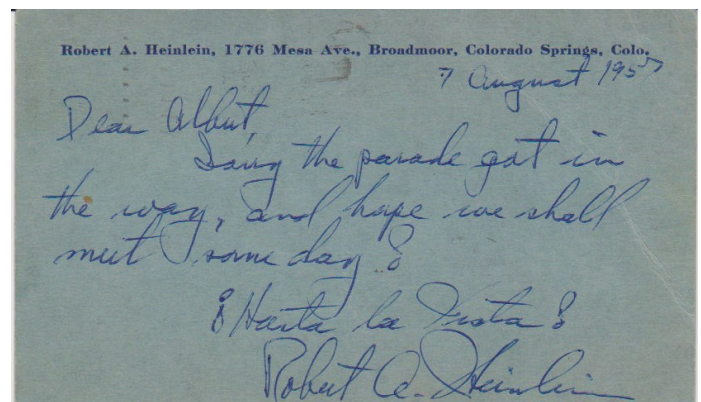 Robert A. Heinlein, 1776 Mesa Ave., Broadmoor, Colorado Springs, Colo.
7 August 1957
Dear Albert,
Sorry the parade got in
the way, and hope we shall
meet some day!
¡Hasta la Vista!
Robert A. Heinlein